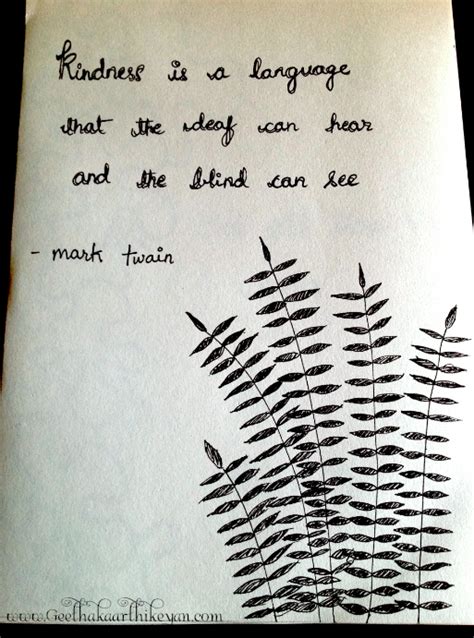 Kindness is a language
that the deaf can hear
and the blind can see
- mark twain
www.Geethakaarthikeyan.com